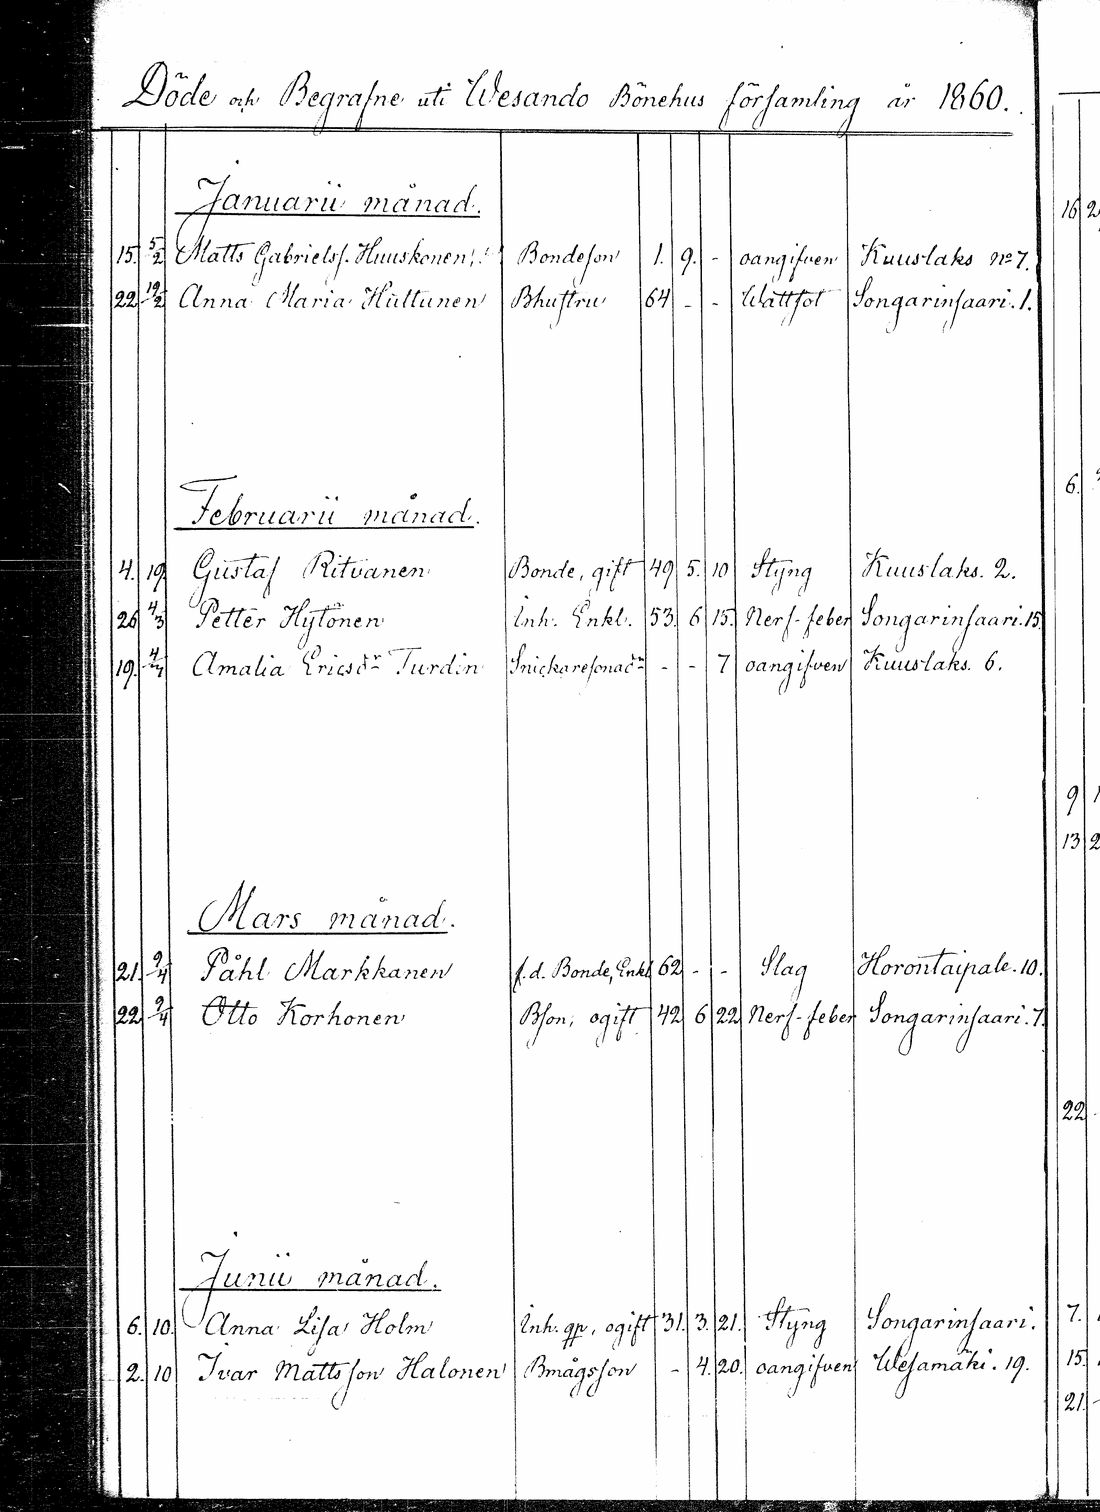 Döde och Begrafne uti Wesando Bönehus församling år 1860.
Januarii månad.
15. 5/2 Matts Gabrielss. Huuskonen Bondeson 1. 9. - oangifven Kuuslaks No 7.
22 19/2 Anna Maria Hultunen Bhustru 64 - - Wattsot Songarinsaari. 1.
Februarii månad.
4. 19 Gustaf Ritvanen Bonde, gift 49 5. 10 Styng Kuuslaks. 2.
26 4/3 Petter Hytönen Inh. Enkl. 53. 6 15. Nerf-feber Songarinsaari. 15
19. Amalia Ericsdr Turdin Snickaresonadr - - 7 oangifven Kuuslaks. 6.
Mars månad.
21. 9/4 Påhl Markkanen f.d. Bonde, Enkl 62 - - Slag Horontaipale. 10.
22 9/4 Otto Korhonen Bson, ogift 42 6 22 Nerf-feber Songarinsaari. 7.
Junii månad.
6. 10. Anna Lisa Holm Inh. qp, ogift 31. 3. 21. Styng Songarinsaari.
2. 10 Ivar Mattsson Halonen Bmågsson - 4. 20. oangifven Wesamäki. 19.
16 2
6.
9
13 2
22
7.
15.
21.